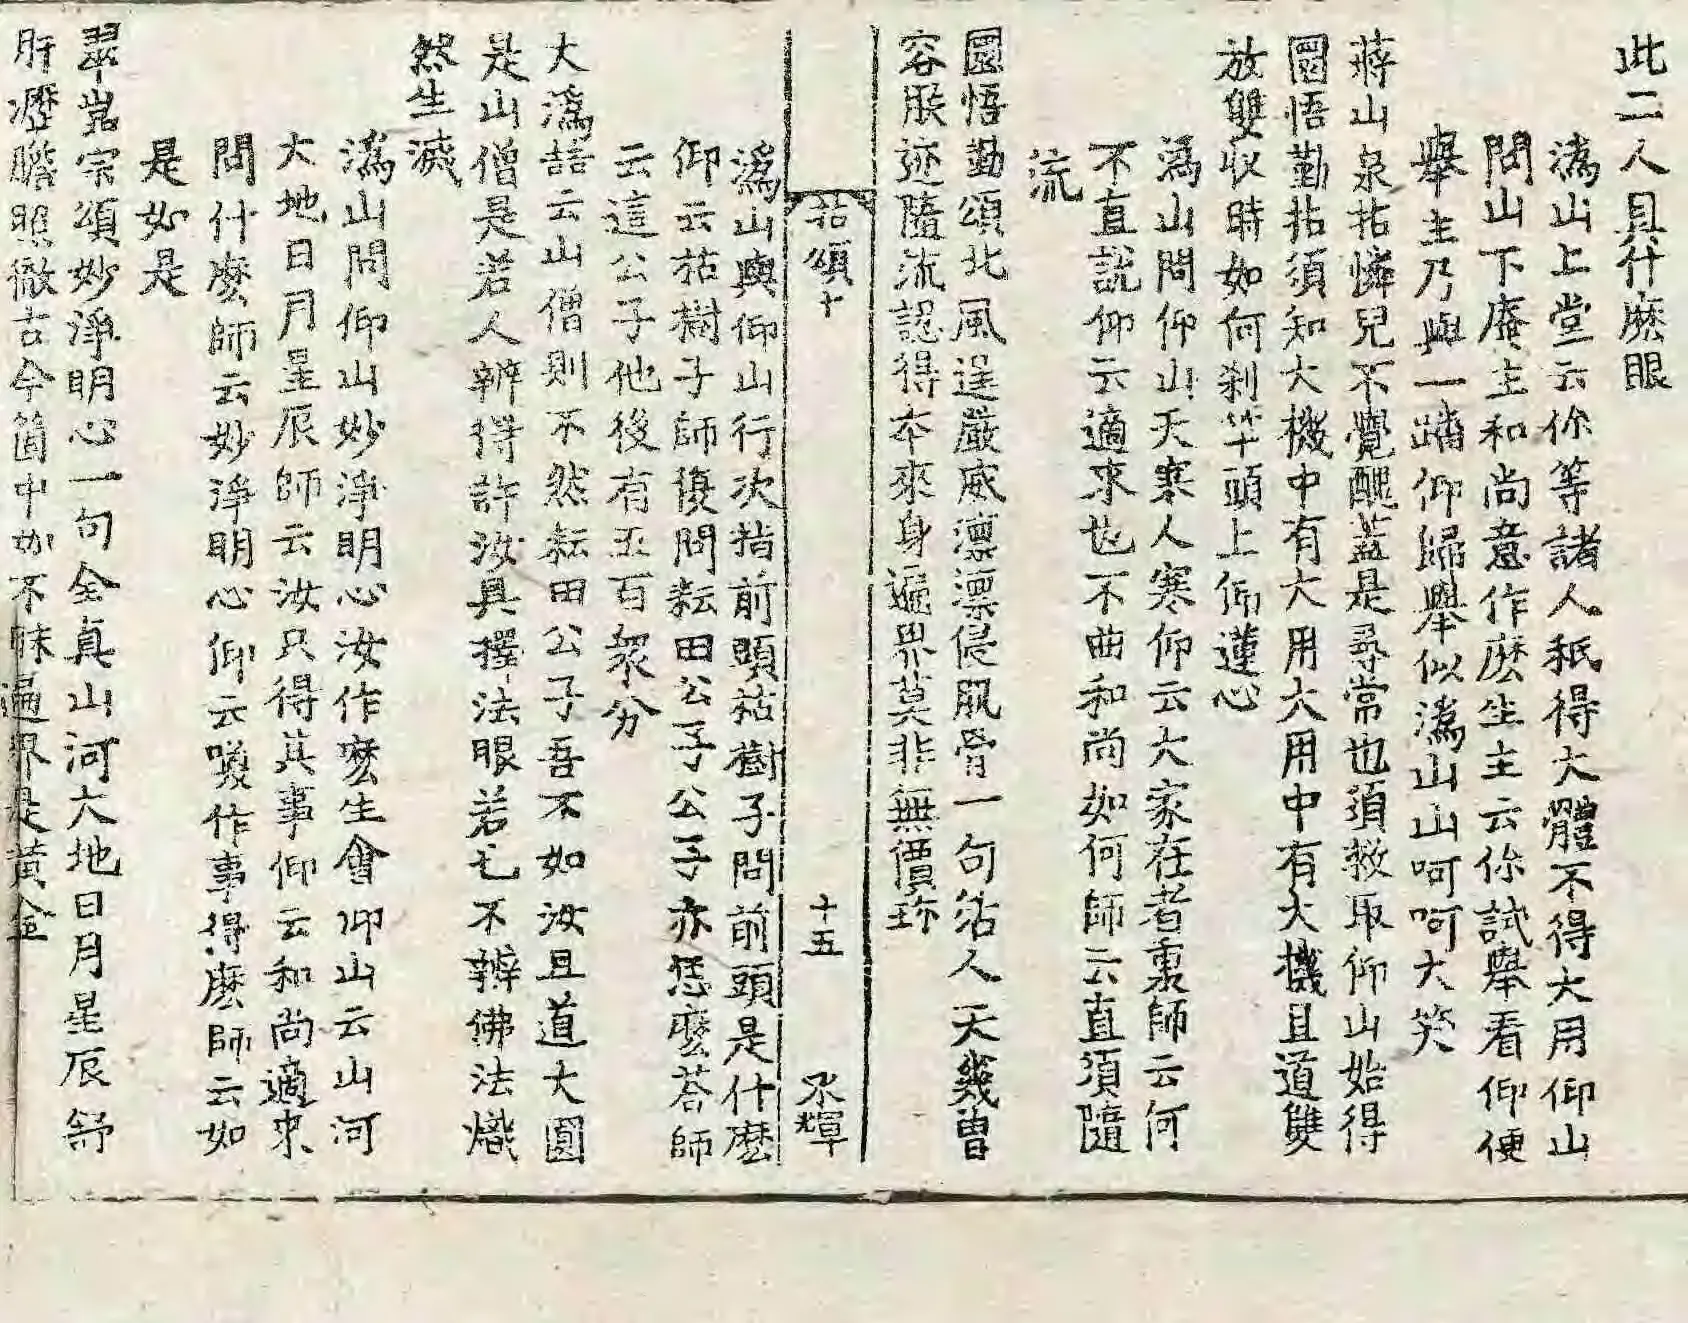 此二人具什麽眼
潙山上堂云你等諸人秖得大體不得大用仰山
問山下庵主和尚意作麽生主云你試舉看仰便
舉主乃與一踏仰歸舉似潙山山呵呵大笑
蔣山泉拈憐兒不覺醜蓋是尋常也須救取仰山始得
圜悟勤拈須知大機中有大用大用中有大機且道雙
放雙收時如何刹竿頭上仰蓮心
潙山問仰山天寒人寒仰云大家在者裏師云何
不直說仰云適來也不曲和尚如何師云直須隨
流
圜悟勤頌北風逞嚴威凛凛侵肌骨一句活人天幾曾
容朕迹隨流認得本來身遍界莫非無價珎
拈頌十
十五
承輝
潙山與仰山行次指前頭枯樹子問前頭是什麽
仰云枯樹子師復問耘田公子公子亦恁麽荅師
云這公子他後有五百衆分
大潙喆云山僧則不然耘田公子吾不如汝且道大圓
是山僧是若人辨得許汝具擇法眼若乇不辨佛法熾
然生滅
潙山問仰山妙淨明心汝作麽生會仰山云山河
大地日月星辰師云汝只得其事仰云和尚適來
問什麽師云妙淨明心仰云喚作事得麽師云如
是如是
翠嵓宗頌妙淨明心一句全真山河大地日月星辰舒
肝瀝膽照徹古今箇中如不昧遍界是黄金